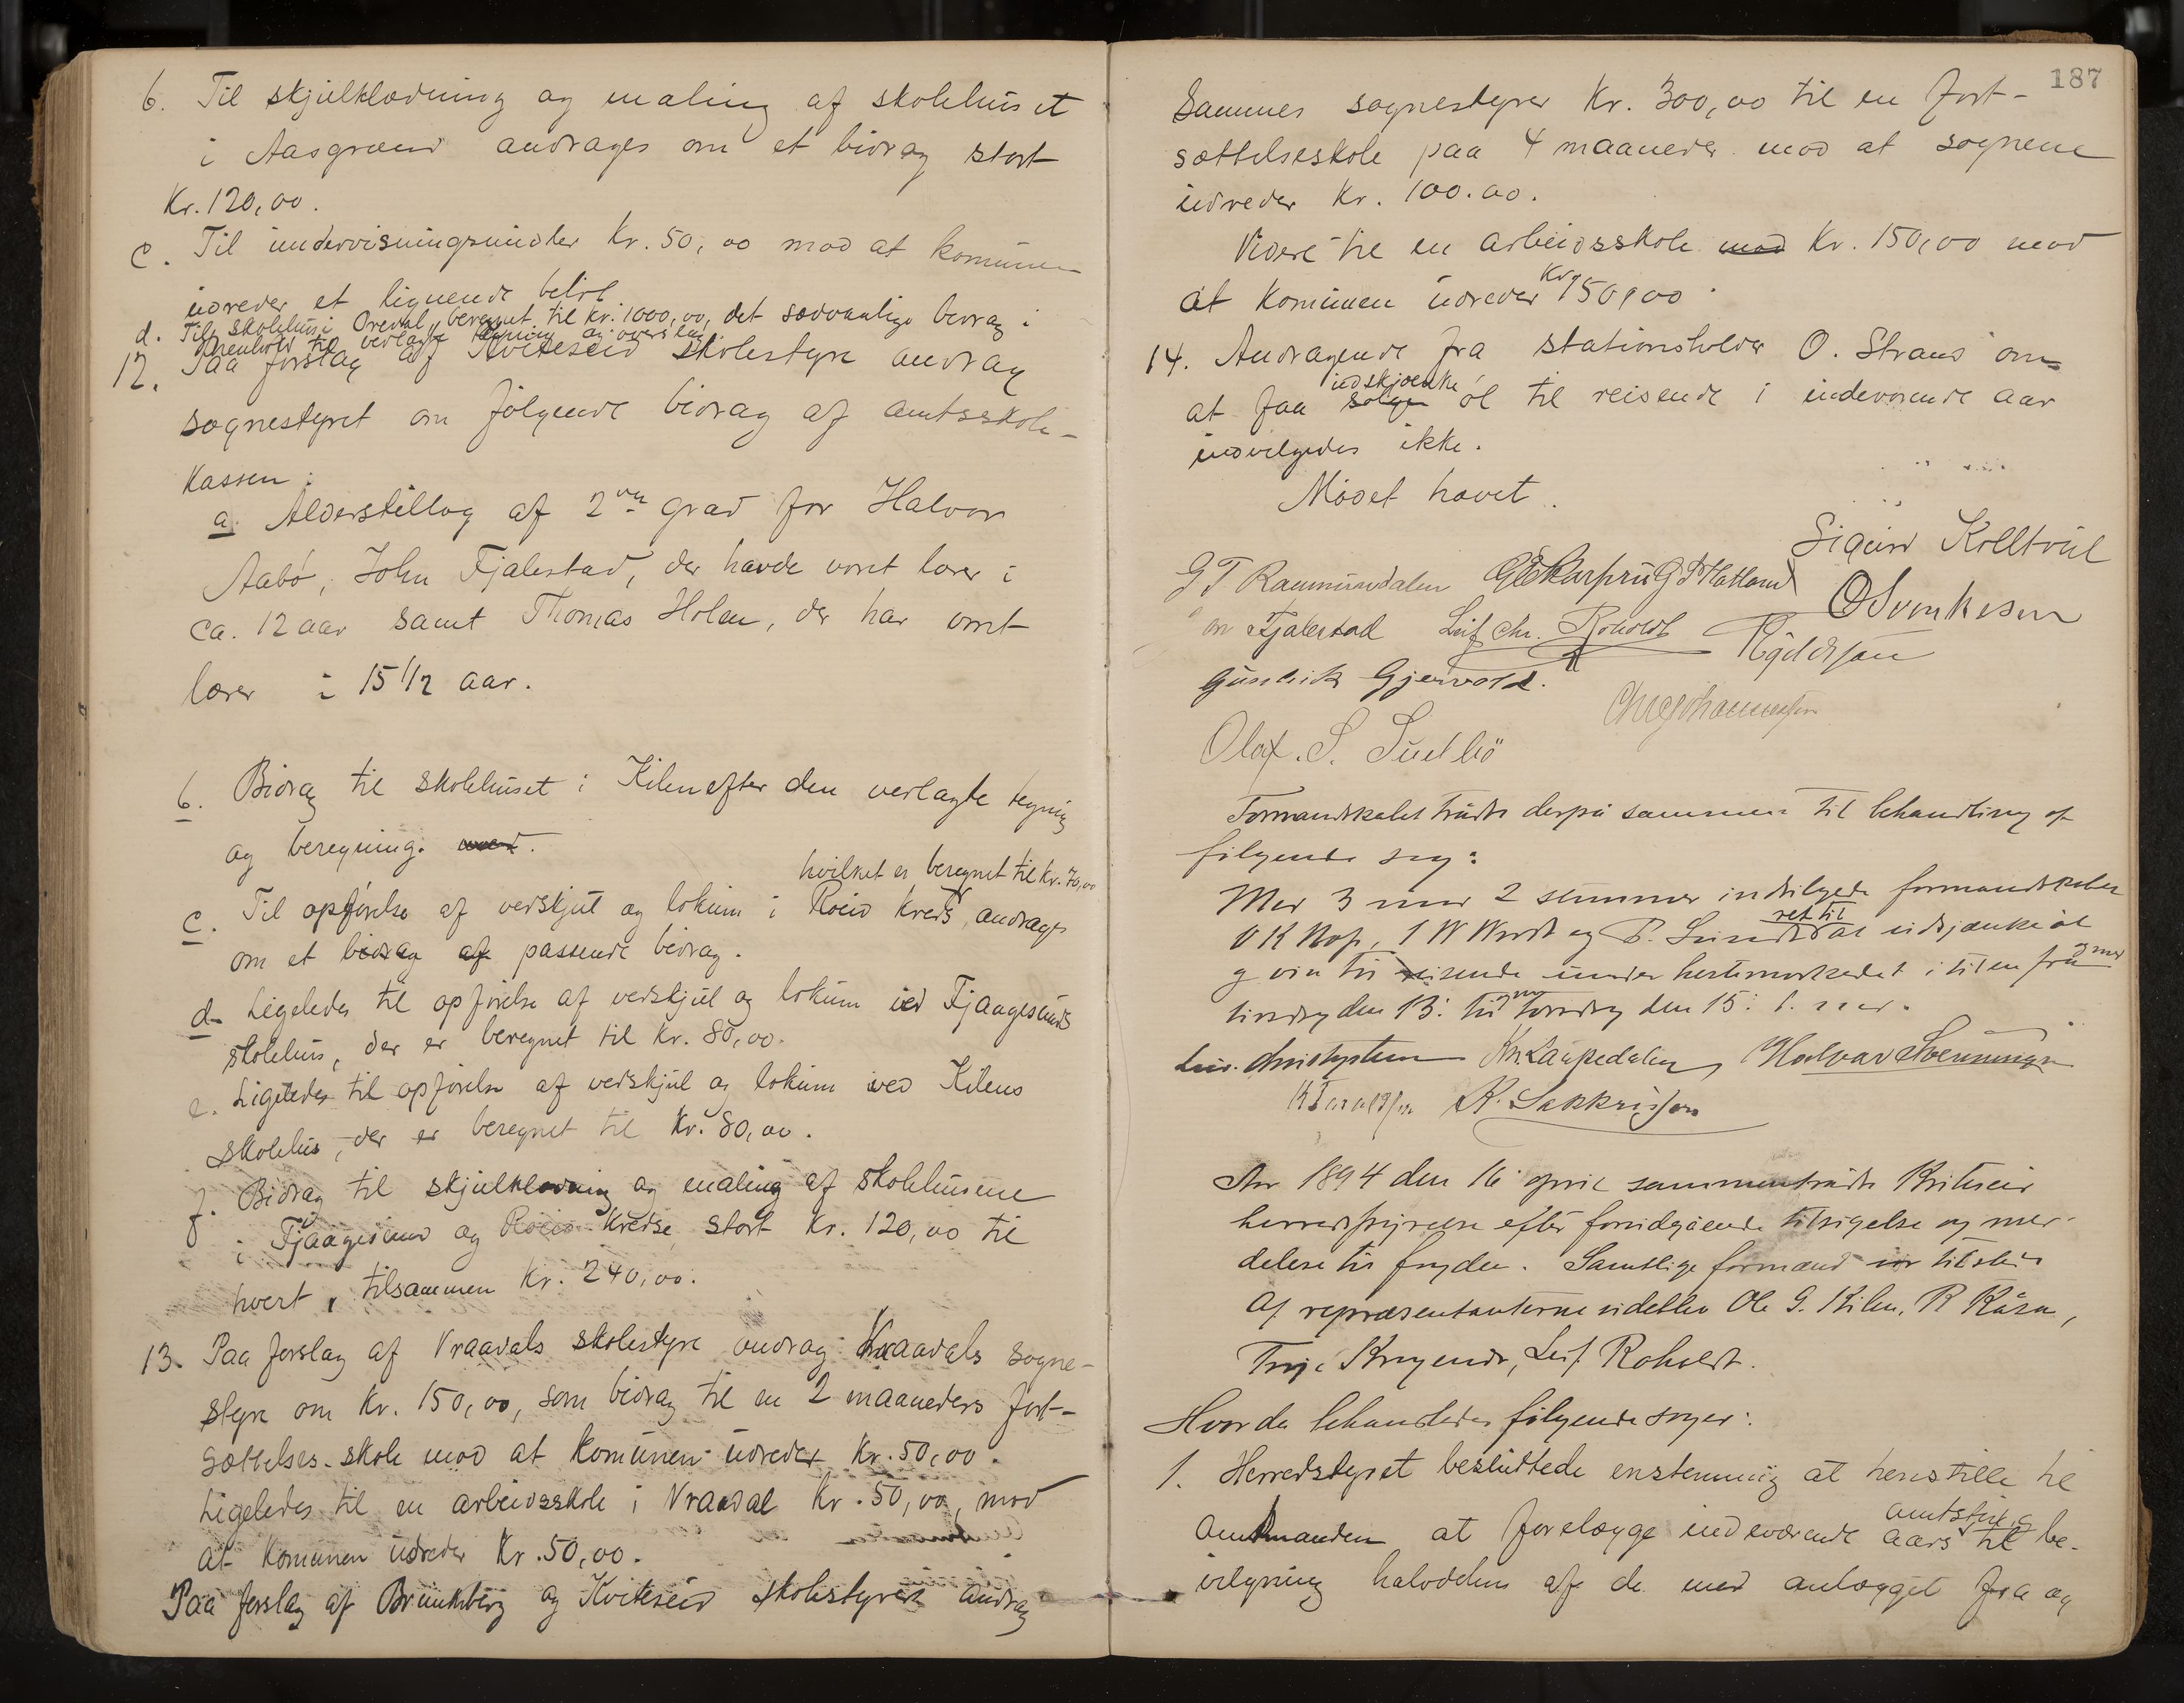 6. Til skjulklædning og maling af skolehuset
i Aasgrænd andrages om et bidrag stort
Kr. 120,00.
c. Til undervisningsmidler Kr. 50,00 mod at komunen
udreder et lignende beløb
d. Til skolehus i Oredal, beregnet til kr. 1000,00, det sædvanlige bidrag i
henhold til verlagte tegning og overslag.
12. Paa forslag af Kviteseid skolestyre androg
sognestyret om følgende bidrag af amtsskole-
kassen:
a. Alderstillæg af 2den grad for Halvor
Aabø, John Fjalestad, der havde været lærer i
ca. 12 aar samt Thomas Holen, der har været
lærer i 15 1/2 aar.
b. Bidrag til skolehuset i Kilen efter den verlagte tegning
og beregning.
hvilket er beregnet til kr. 70,00
c. Til opførelse af vedskjul og lokum i Roeid kreds, andrages
om et bidrag af passende bidrag.
d. Ligeledes til opførelse af vedskjul og lokum ved Fjaagesunds
skolehus, der er beregnet til kr. 80,00.
e. Ligeledes til opførelse af vedskjul og lokum ved Kilens
skolehus, der er beregnet til Kr. 80,00.
f. Bidrag til skjulklædning og maling af skolehusene
i Fjaagesund og Roeid kredse, stort kr. 120,00 til
hvert, tilsammen kr. 240,00.
13. Paa forslag af Vraadals skolestyre androg Vraadals sogne-
styre om kr. 150,00, som bidrag til en 2 maaneders fort-
sættelses-skole mod at komunen udreder kr. 50,00.
Ligeledes til en arbeidsskole i Vraadal kr. 50,00, mod
at komunen udreder Kr. 50,00.
Paa forslag af Brunkeberg og Kviteseid skolestyrer androg
187
Sammes sognestyrer Kr. 300,00 til en fort-
sættelseskole paa 4 maaneder mod at sognene
udreder Kr. 100.00.
Videre til en arbeidsskole mod Kr. 150,00 mod
at komunen udreder Kr 50,00.
14. Andragende fra stationsholder O. Strand om
at faa sælge udskjænke øl til reisende i indeværende aar
indvilgedes ikke.
Mødet hævet.
Sigurd Kolltveit
G T Raumundalen G T Hatland
Fjalestad Leif Chr. Roholdt
Gunleik Gjervold.
Olaf. S. Sudbö
Formandskabet traadte derpå sammen til behandling af
følgende sag:
Med 3 mod 2 stemmer indvilgede formandskabet
ret til at udskjænke øl
og vin til reisende under hestemarkedet i tiden fra og med
tirsdag den 13: til og med torsdag den 15:
Kn. Laupedalen Halvor Svenningsen
K. Sakkrisson
Aar 1894 den 16 april sammentraadte Kviteseid
herredsstyrelse efter forudgående tilsigelse og med-
delelse til fogden. Samtlige formænd var tilstede
Af repræsentanterne udeblev Ole G. Kilen, R Råsa,
Leif Roholdt.
Hvor da behandledes følgende sager:
1. Herredstyret besluttede enstemmig at henstille til
Amtmanden at forelægge indeværende aars amtsting til be-
vilgning halvdelen af de med anlægget fra og